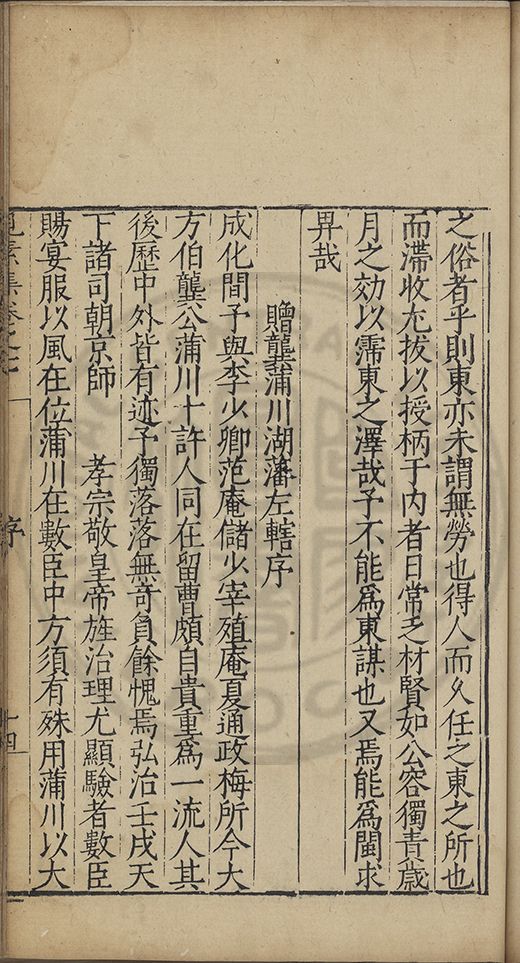 之俗者乎則東亦未謂無勞也得人而久任之東之所也
而滯收充拔以授柄于内者日常乏材賢如公容獨責歲
月之効以霈東之澤哉予不能爲東謀也又焉能爲閩求
畀哉
贈龔蒲川湖藩左轄序
成化間予與李少卿范庵儲少宰殖庵夏通政梅所今大
方伯龔公蒲川十許人同在留曹頗自貴重爲一流人其
後歷中外皆有迹予獨落落無奇負餘愧焉弘治壬戌天
下諸司朝京師 孝宗敬皇帝旌治理尤顯驗者數臣
賜宴服以風在位蒲川在數臣中方須有殊用蒲川以大
序
十四